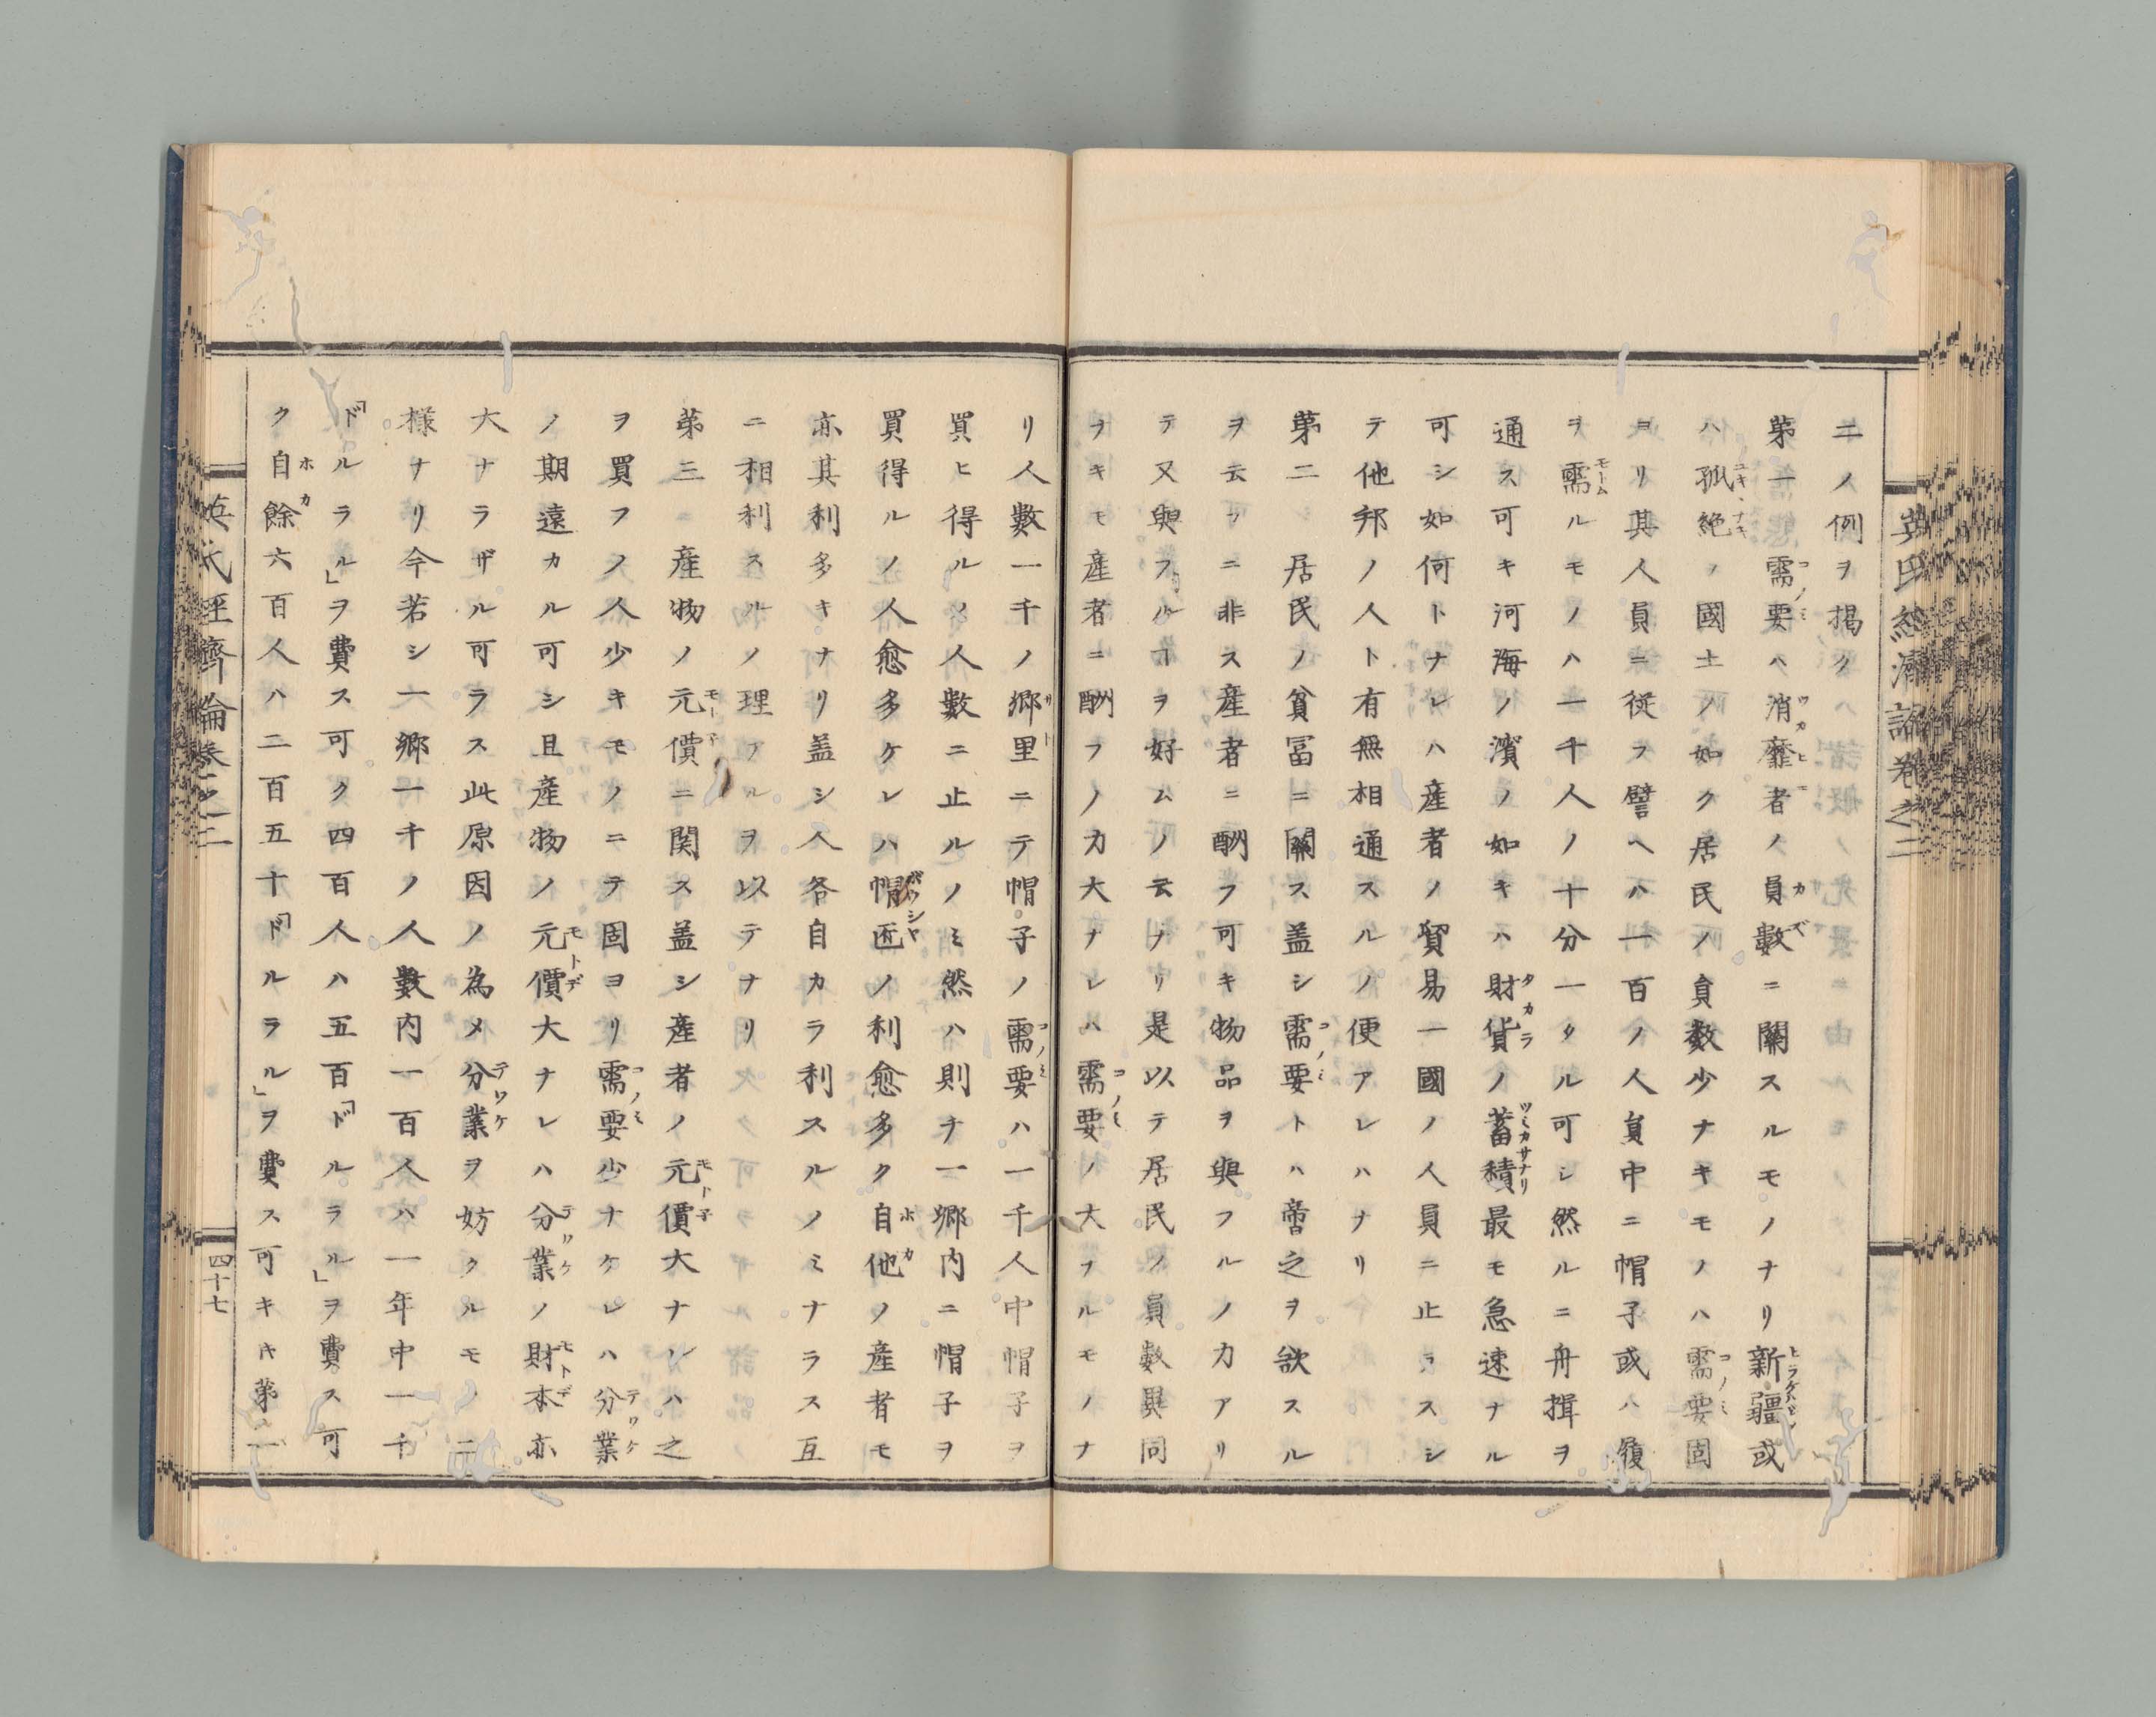 英氏経濟論巻之二
二ノ例ヲ掲ク
第一需要ハ消靡者ノ員數ニ關スルモノナリ新疆或
ハ孤絶ノ國土ノ如ク居民ノ員數少ナキモノハ需要固
ヨリ其人員ニ従フ譬ヘハ一百ノ人員中ニ帽子或ハ履
ヲ需ルモノハ一千人ノ十分一タル可シ然ルニ舟揖ヲ
通ス可キ河海ノ濱ノ如キハ財貨ノ蓄積最モ急速ナル
可シ如何トナレハ産者ノ貿易一國ノ人員ニ止ラスシ
テ他邦ノ人ト有無相通スルノ便アレハナリ
第二 居民ノ貧冨ニ關ス蓋シ需要トハ啻之ヲ欲スル
ヲ云フニ非ス産者ニ酬フ可キ物品ヲ與フルノ力アリ
テ又與フルヿヲ好ムノ云ナリ是以テ居民ノ員數異同
ヲキモ産者ニ酬フノ力大ナレハ需要ノ大ナルモノナ
リ人數一千ノ郷里ニテ帽子ノ需要ハ一千人中帽子ヲ
買ヒ得ルノ人數ニ止ルノミ然ハ則チ一郷内ニ帽子ヲ
買得ルノ人愈多ケレハ帽匠ノ利愈多ク自他ノ産者モ
亦其利多キナリ蓋シ人各自カラ利スルノミナラス互
ニ相利スルノ理アルヲ以テナリ
第三 産物ノ元價ニ関ス蓋シ産者ノ元價大ナレハ之
ヲ買フノ人少キモノニテ固ヨリ需要少ナケレハ分業
ノ期遠カル可シ且産物ノ元價大ナレハ分業ノ財本亦
大ナラザル可ラス此原因ノ為メ分業ヲ妨クルモノ二
様ナリ今若シ一郷一千ノ人數内一百人ハ一年中一千
「ドルラル」ヲ費ス可ク四百人ハ五百「ドルラル」ヲ費ス可
ク自餘六百人ハ二百五十「ドルラル」ヲ費ス可キキ第一
英氏経齊倫巻之二
四十七